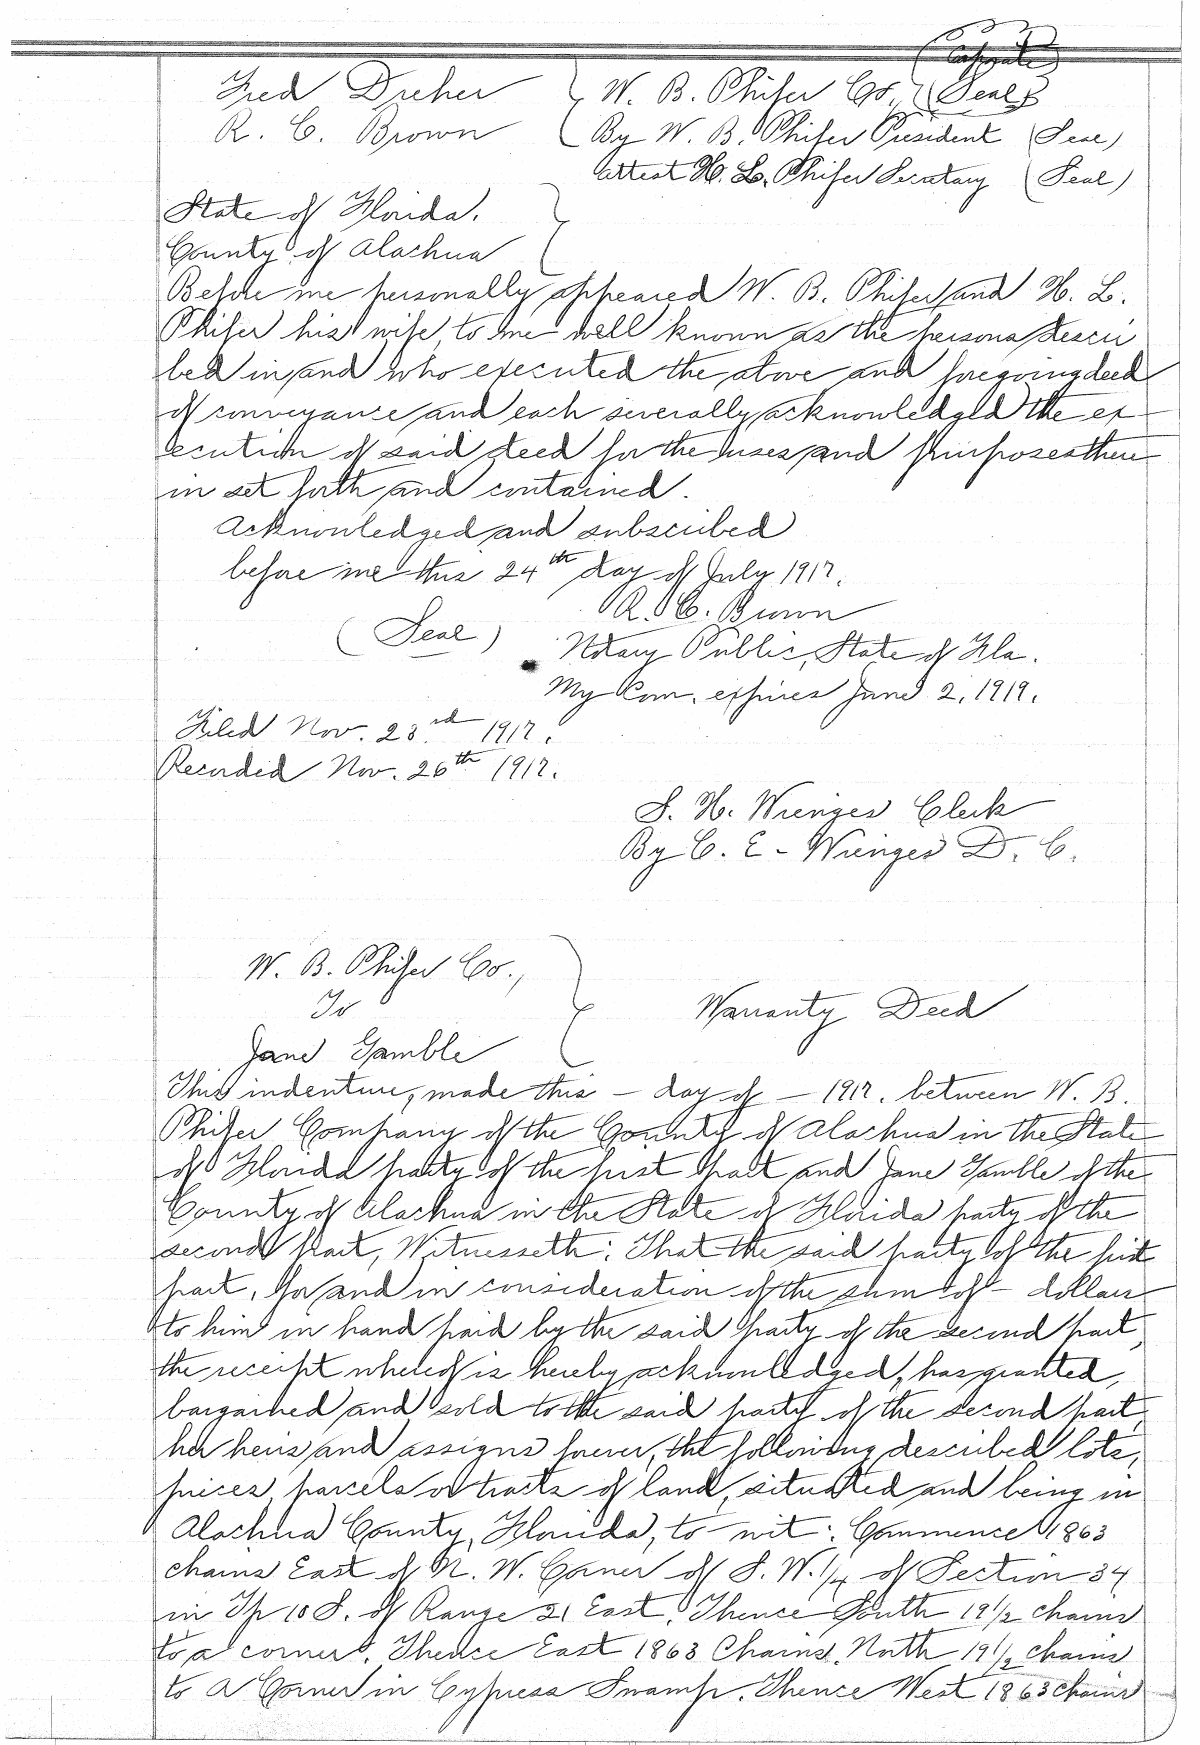 (Corporate
Fred Dreher } W. B. Phifer Co., (Seal)
R. C. Brown { By W. B. Phifer President (Seal)
Attest H. L. Phifer Secratary (Seal)
State of Florida. }
County of Alachua {
Before me personally appeared W. B. Phifer and H. L.
Phifer his wife, to me well known as the persons descri
bed in and who executed the above and foregoing deed
of conveyance and each severally acknowledged the ex-
ecution of said deed for the uses and purposes there
in set forth and contained.
Acknowledged and subscribed
before me this 24th day of July 1917.
R. C. Brown
(Seal) Notary Public, State of Fla.
My Com. expires June 2, 1919.
Filed Nov. 23rd 1917.
Recorded Nov. 26th 1917.
S. H. Wienges Clerk
By C. E - Wienges D. C.
W. B. Phifer Co.,
To } Warranty Deed
Jane Gamble
This indenture, made this - day of - 1917. between W. B.
Phifer Company of the County of Alachua in the State
of Florida party of the first part and Jane Gamble of the
County of Alachua in the State of Florida party of the
second part, Witnesseth: That the said party of the first
part, for and in consideration of the sum of - dollars
to him in hand paid by the said party of the second part,
the receipt whereof is hereby acknowledged, has granted,
bargained and sold to the said party of the second part,
her heirs and assigns forever, the following described lots,
pieces, parcels or tracts of land, situated and being in
Alachua County, Florida, to wit: Commence 1863
chains East of N. W. Corner of S. W. 1/4 of Section 34
in Tp 10 S. of Range 21 East, Thence South 19 1/2 chains
to a corner. Thence East 1863 Chains, North 19 1/2 chains
to a Corner in Cypress Swamp. Thence West 1863 chains